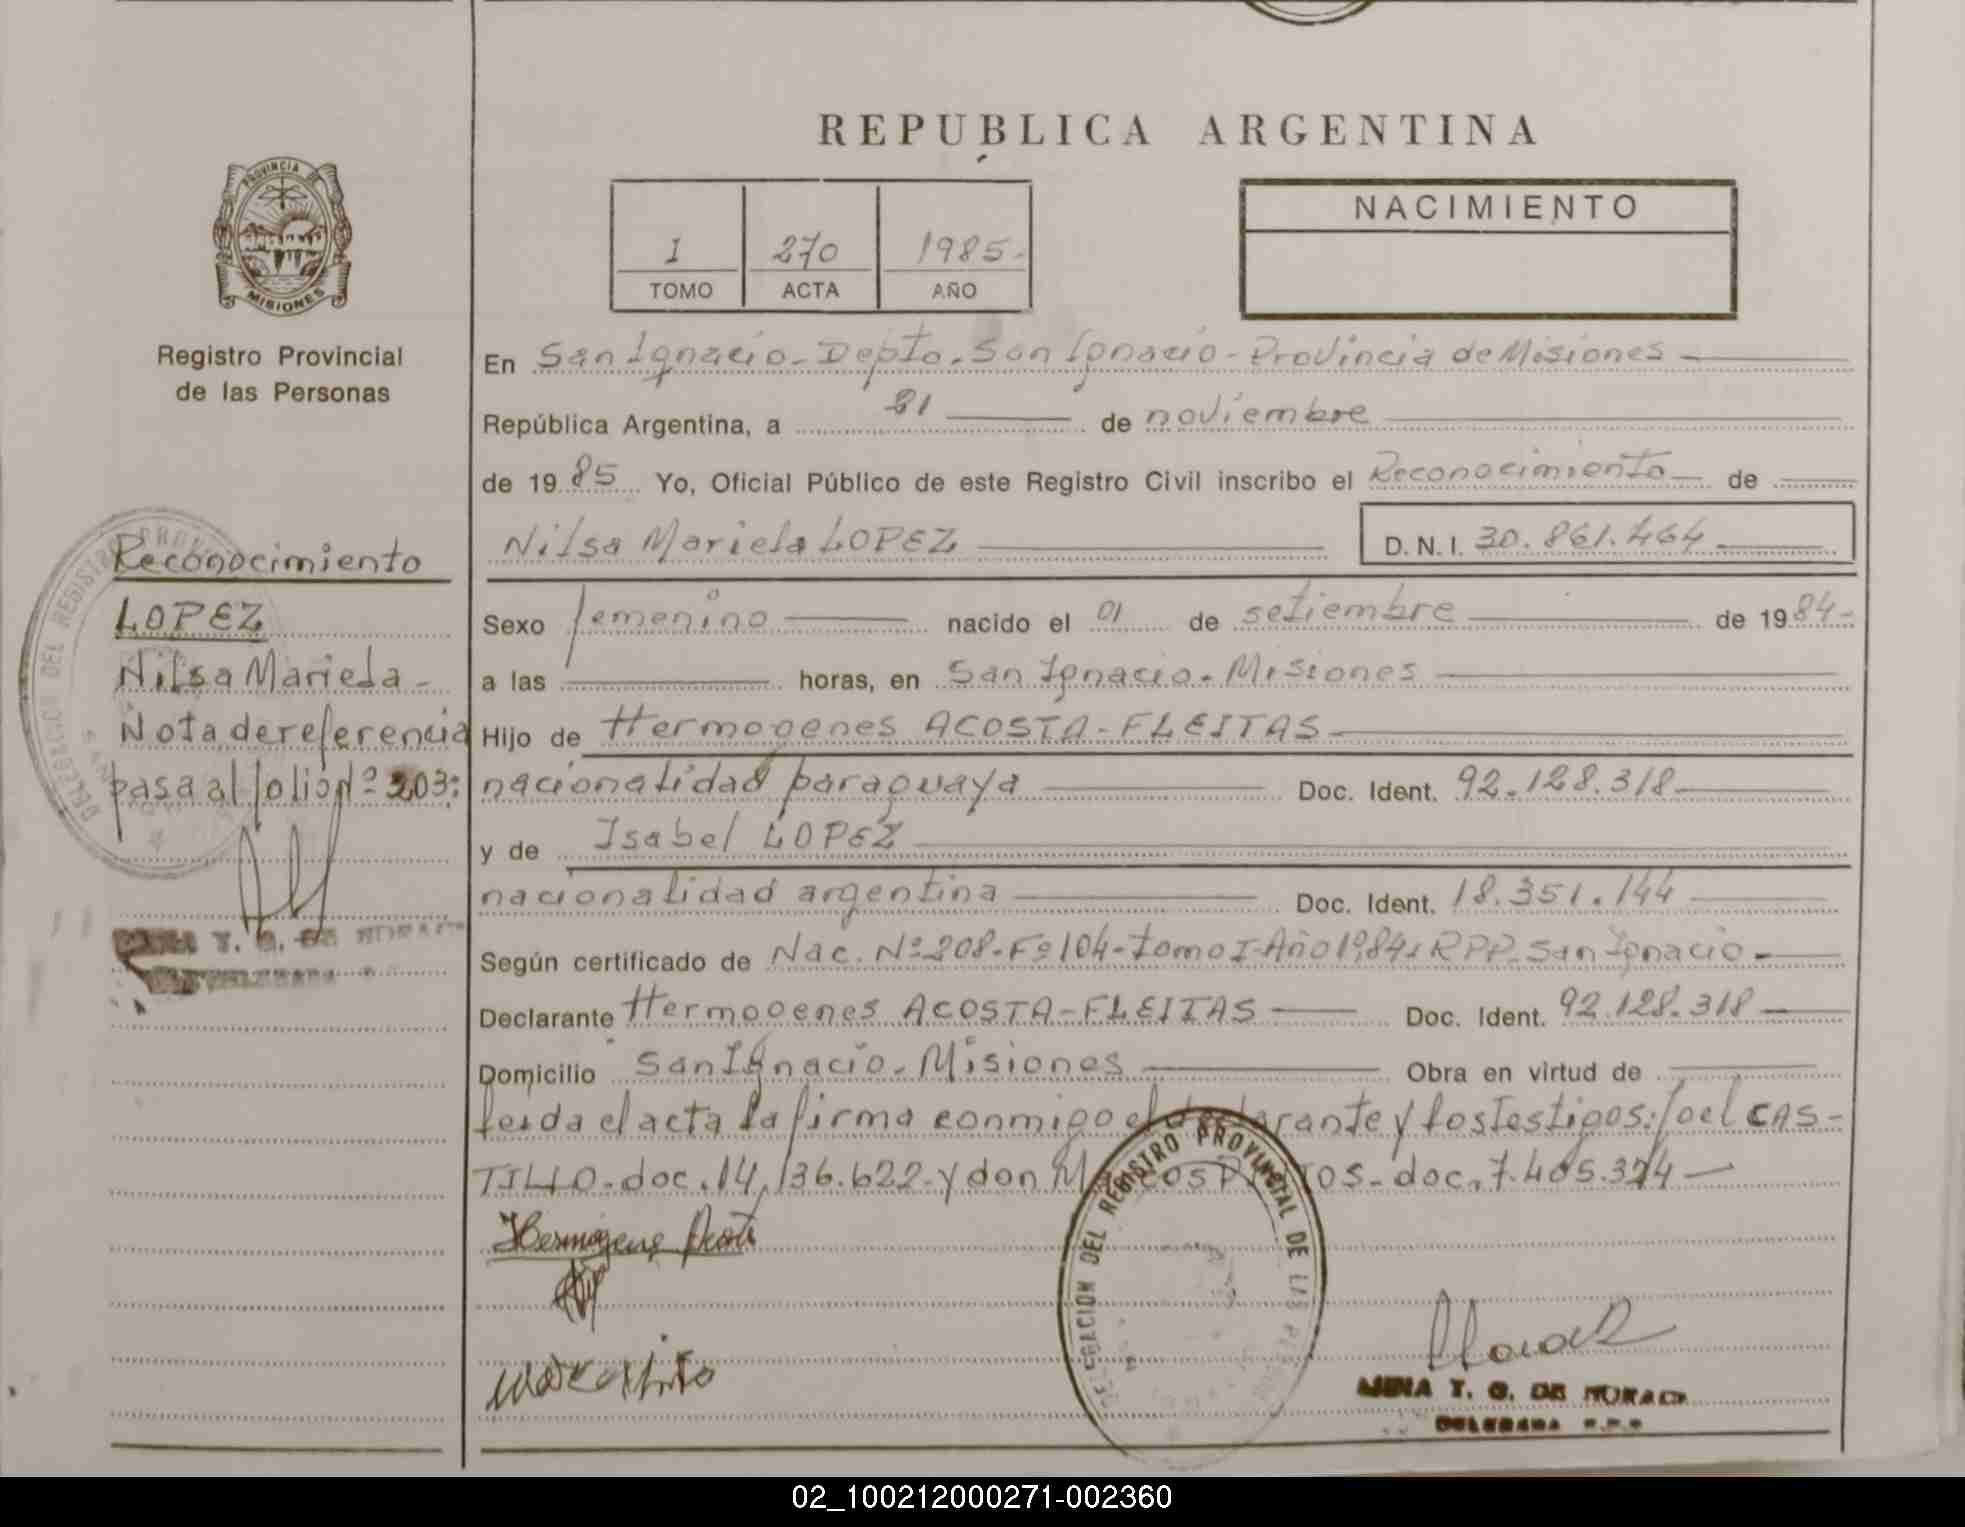 REPUBLICA ARGENTINA
PROVINCIA DE
MISIONES
Registro Provincial
de las Personas
I 270 1985-
TOMO ACTA AÑO
NACIMIENTO
En San Ignacio - Depto. San Ignacio - Provincia de Misiones
República Argentina, a 21 de noviembre
de 1985 Yo, Oficial Público de este Registro Civil inscribo el Reconocimiento de
Nilsa Mariela LOPEZ D.N.I. 30.861.464
Sexo femenino nacido el 01 de setiembre de 1984-
a las horas, en San Ignacio - Misiones
Hijo de Hermogenes ACOSTA-FLEITAS
nacionalidad paraguaya Doc. Ident. 92.128.318
y de Isabel LOPEZ
nacionalidad argentina Doc. Ident. 18.351.144
Según certificado de Nac. Nº 208-Fº 104-Tomo I-Año 1984-RPP. San Ignacio
Declarante Hermogenes ACOSTA-FLEITAS Doc. Ident. 92.128.318
Domicilio San Ignacio - Misiones Obra en virtud de
leida el acta la firma conmigo el declarante y los testigos: Joel CAS-
TILLO-doc. 14.136.622-y don doc. 7.405.324
DELEGACION DEL REGISTRO PROVINCIAL DE LAS
MINA T. G. DE
DELEGADA
Reconocimiento
LOPEZ
Nilsa Mariela -
Nota de referencia
pasa al folio Nº 203:
T. G. DE
02_100212000271-002360